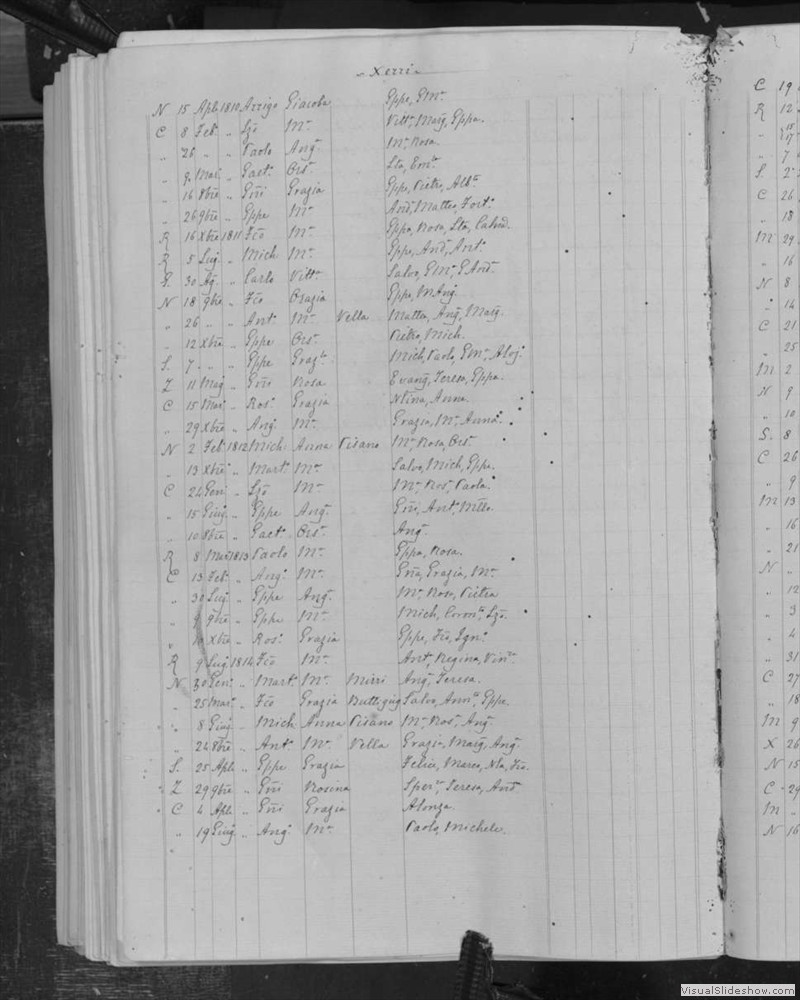 Xerri
N 15 Aple 1810 Arrigo Giacoba Gppe, Em.
C 8 Feb. " Lzo M. Vitt. Marg, Gppa.
" 26 " " Paolo Ang. M. Rosa.
" 9 Mar. " Gaet. Ors. Lta, Em.
" 16 8bre " Gñi Grazia Gppe, Pietro, Alb.
" 26 9bre " Gppe M. And. Matteo, Fort.
R 16 Xbre 1811 Fco M. Gppa, Rosa, Lta, Calced.
R 5 Lug. " Mich M. Gppe, And, Ant.
G. 30 Ag. " Carlo Vitt. Salvo, Em. And.
N 18 9bre " Fco Grazia Gppe, M Ang.
" 26 " " Ant. M. Vella Matteo, Ang, Marg.
" 12 Xbre " Gppe Ors. Pietro, Mich.
S. 7 " " Gppe Graz. Mich, Paolo, Em., Aloj.
Z 11 Mag " Gño Rosa Evang, Teresa, Gppa.
C 15 Mar. " Ros. Grazia Ntina, Anna.
" 29 Xbre " Ang. M. Grazia, M. Anna.
N 2 Feb. 1812 Mich. Anna Pisano M. Rosa, Ors.
" 13 Xbre " Mart. M. Salvo, Mich, Gppa.
C 24 Gen. " Lzo M. M. Ros. Paola.
" 15 Giug. " Gppe Ang. Gñi, Ant. Mtteo.
" 10 8bre " Gaet. Ors. Ang.
R 8 Mar. 1813 Paolo M. Gppa, Rosa.
C 13 Feb. " Ang. M. Gña, Grazia, M.
" 30 Lug. " Gppe Ang. M. Rosa, Pietra
" 9 9bre " Gppe M. Mich, Coron. Lzo.
" 10 Xbre " Ros. Grazia Gppe, Fco, Ign.
R 9 Lug. 1814 Fco M. Ant, Regina, Vin.
N 30 Gen. " Mart. M. Micci Ang. Teresa.
" 25 Mar. " Fco Grazia Buttigieg Salvo, Ann. Gppe.
" 8 Giug. " Mich. Anna Pisano M. Ros. Ang.
" 24 8bre " Ant. M. Vella Grazia, Marg, Ang.
S. 25 Aple " Gppe Grazia Felice, Marco, Nta, Fco.
Z 29 9bre " Gñi Rosina Sper. Teresa, And.
C 4 Aple " Gñi Grazia Alonza.
" 19 Giug. " Ang. M. Paolo, Michele.
C 19
R 12
" 7
S. 2
C 26
" 18
M 29
" 16
N 8
" 14
C 21
" 25
M 2
N 9
" 10
S. 8
C 26
" 9
M 13
" 16
" 21
N "
" 12
" 3
" 4
" 31
C 27
" 18
M 9
X 26
N 15
C 29
M "
N 16
VisualSlideshow.com